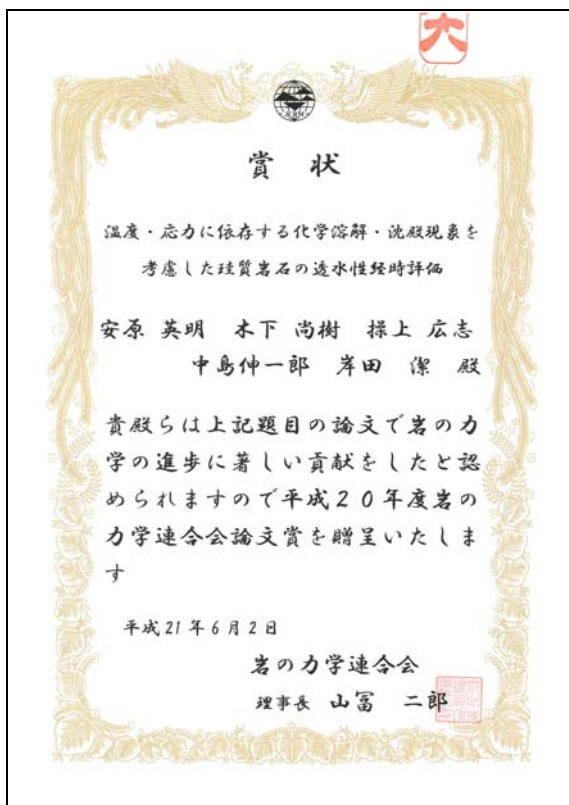 大
賞 状
温度・応力に依存する化学溶解・沈殿現象を
考慮した珪質岩石の透水性経時評価
安原 英明 木下 尚樹 操上 広志
中島伸一郎 岸田 潔 殿
貴殿らは上記題目の論文で岩の力
学の進歩に著しい貢献をしたと認
められますので平成20年度岩の
力学連合会論文賞を贈呈いたしま
す
平成21年6月2日
岩の力学連合会
理事長 山冨 二郎